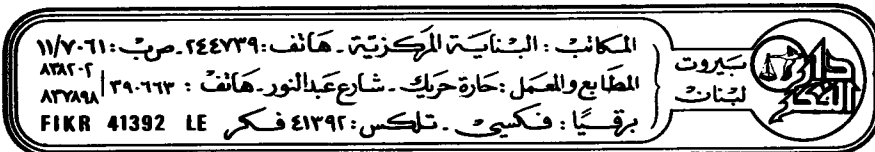 دار الفكر
بيروت
لبنان
المكاتب : البناية المركزية ـ هاتف : ٢٤٤٧٣٩ ـ ص ب : ١١/٧٠٦١
المطابع والمعمل : حارة حريك ـ شارع عبد النور ـ هاتف : ٣٩٠٦٦٣ | ٨٣٨٢٠٢ ٨٣٧٨٩٨
برقيًا : فكسي ـ تلكس : ٤١٣٩٢ فكر FIKR 41392 LE